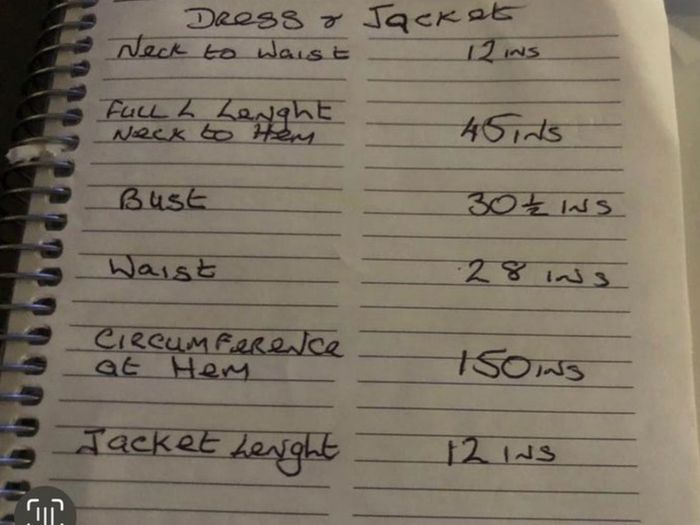 Dress & Jacket
Neck to Waist 12 ins
Full L Lenght
Neck to Hem 45 ins
Bust 30 ½ ins
Waist 28 ins
Circumference
at Hem 150 ins
Jacket Lenght 12 ins